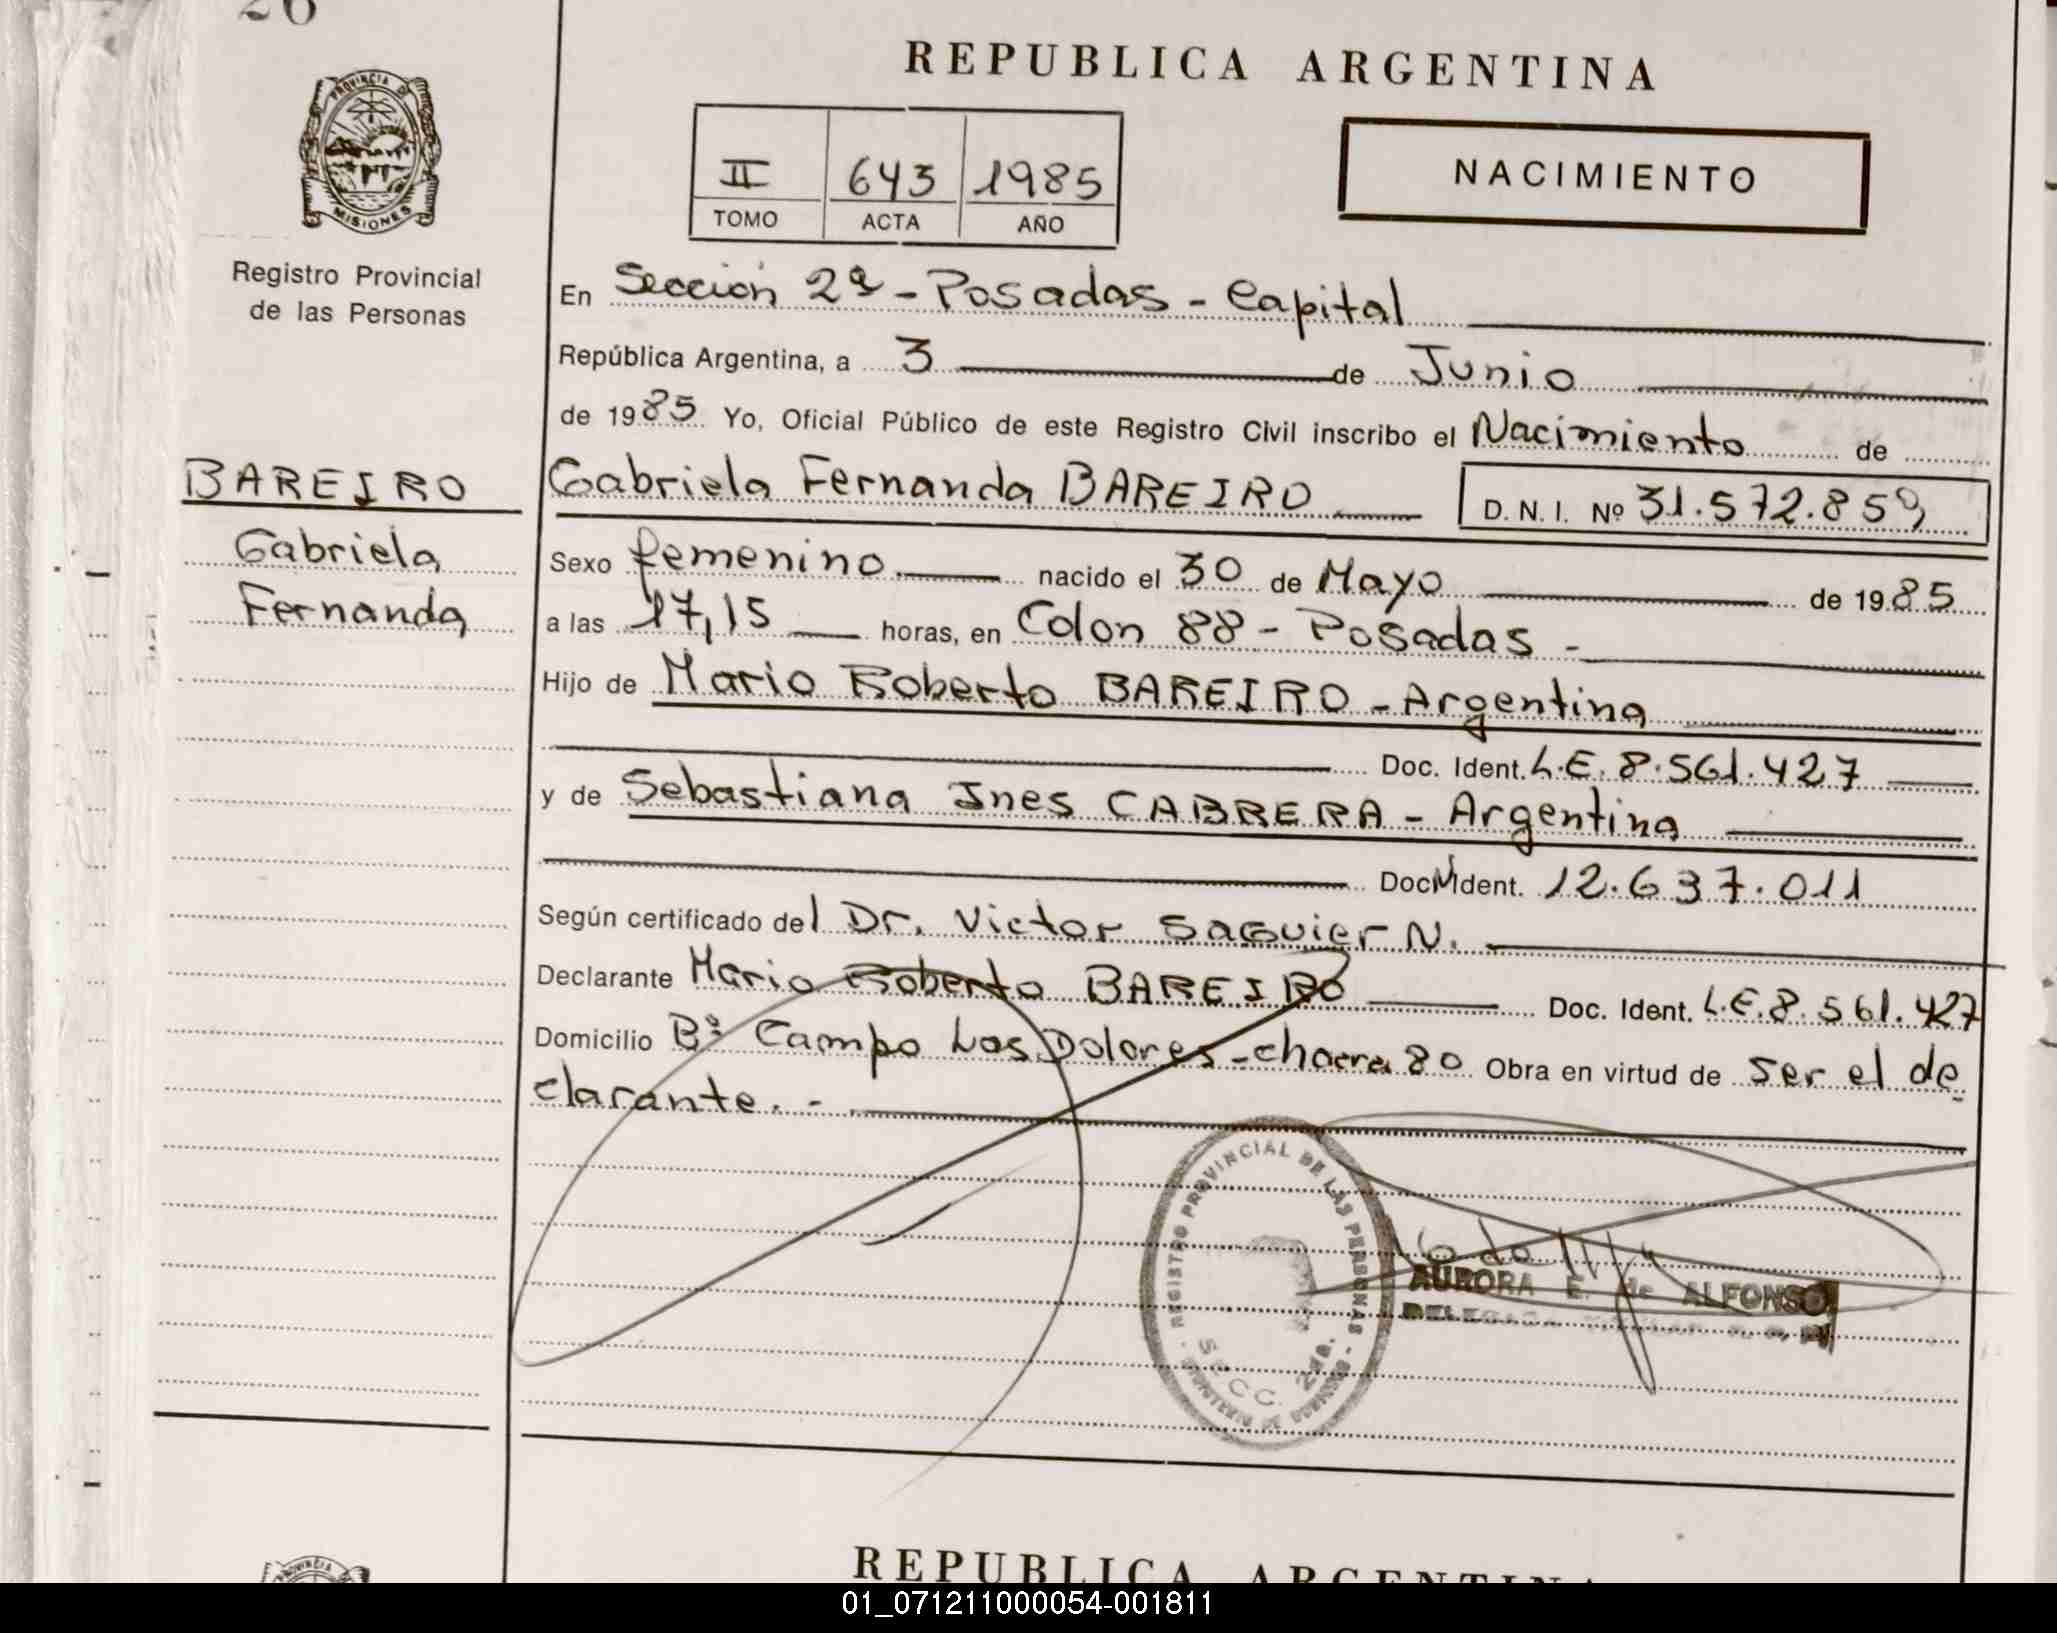 26
REPUBLICA ARGENTINA
PROVINCIA DE MISIONES
II 643 1985
TOMO ACTA AÑO
NACIMIENTO
Registro Provincial
de las Personas
En Sección 2ª - Posadas - Capital
República Argentina, a 3 de Junio
de 1985 Yo, Oficial Público de este Registro Civil inscribo el Nacimiento de
BAREIRO
Gabriela
Fernanda
Gabriela Fernanda BAREIRO D. N. I. Nº 31.572.859
Sexo femenino nacido el 30 de Mayo de 1985
a las 17,15 horas, en Colon 88 - Posadas -
Hijo de Mario Roberto BAREIRO - Argentina
Doc. Ident. L.E. 8.561.427
y de Sebastiana Ines CABRERA - Argentina
Doc. Ident. 12.637.011
Según certificado del Dr. Victor Saguier N.
Declarante Mario Roberto BAREIRO Doc. Ident. L.E. 8.561.427
Domicilio Bº Campo Los Dolores - chacra 80 Obra en virtud de ser el de
clarante. -
REGISTRO PROVINCIAL DE LAS PERSONAS
SECC. 2da.
AURORA E. de ALFONSO
REPUBLICA ARGENTINA
01_071211000054-001811